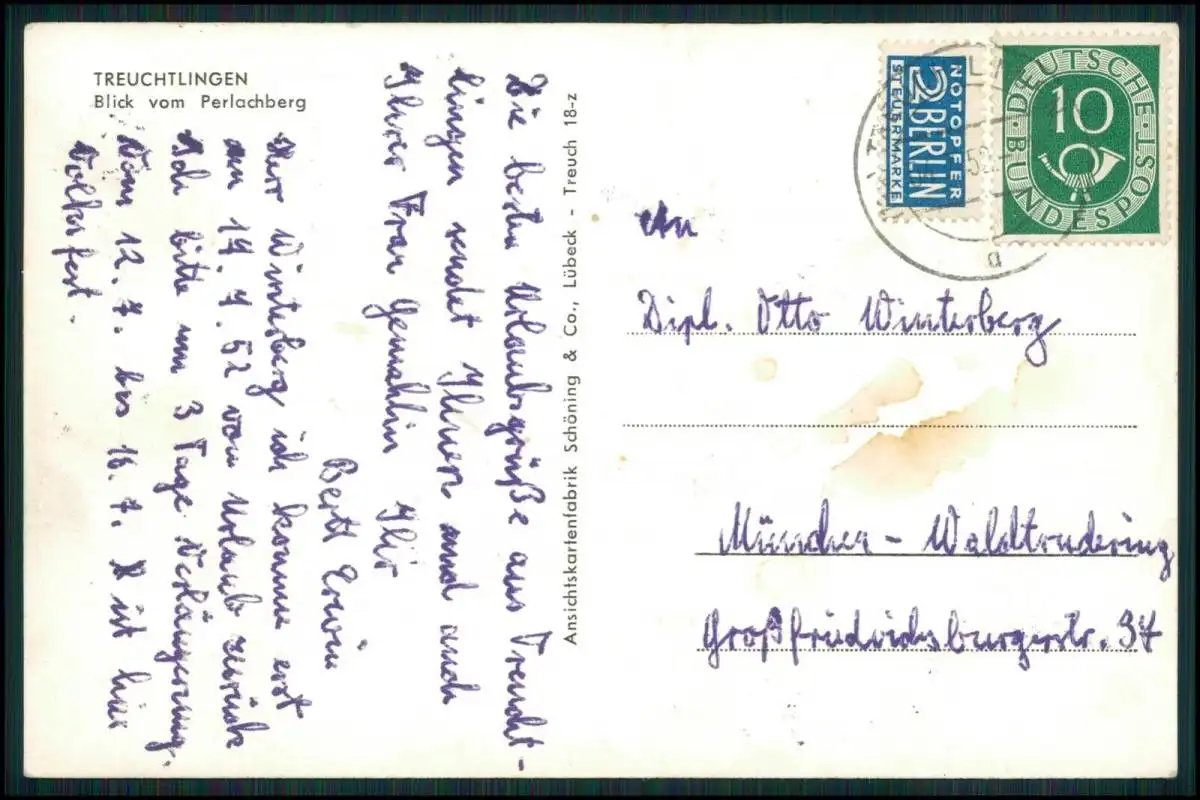 TREUCHTLINGEN
Blick vom Perlachberg
Die besten Urlaubsgrüße aus Treucht-
lingen sendet Ihnen und auch
Ihrer Frau Gemahlin Ihr
Bertl Erwin
Herr Winterberg ich komme erst
am 19.7.52 vom Urlaub zurück
Ich bitte um 3 Tage Verlängerung.
Vom 12.7. bis 16.7. ist hier
Volksfest.
Ansichtskartenfabrik Schöning & Co., Lübeck - Treuch 18-z
NOTOPFER
2 BERLIN
STEUERMARKE
DEUTSCHE BUNDESPOST
10
52
a
An
Dipl. Otto Winterberg
München - Waldtrudering
Großfriedrichsburgerstr. 34